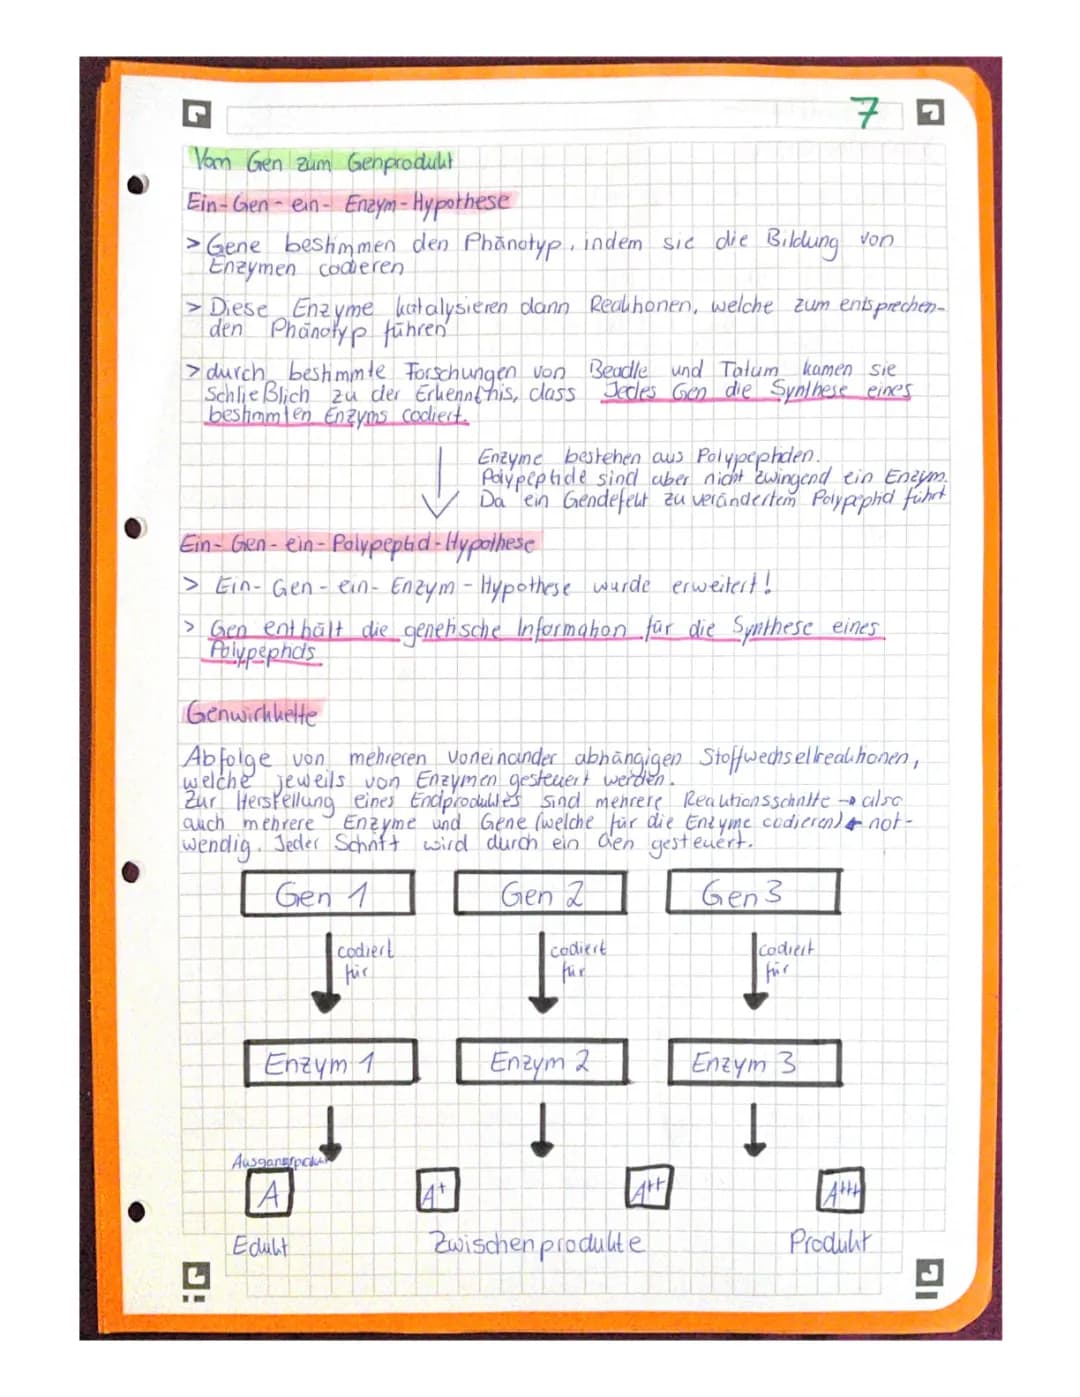 7
Vom Gen zum Genprodukt
Ein-Gen-ein-Enzym-Hypothese
> Gene bestimmen den Phänotyp, indem sie die Bildung von
Enzymen codieren
> Diese Enzyme katalysieren dann Reaktionen, welche zum entsprechen-
den Phänotyp führen
> durch bestimmte Forschungen von Beadle und Tatum kamen sie
Schließlich zu der Erkenntnis, dass Jedes Gen die Synthese eines
bestimmten Enzyms codiert.
Enzyme bestehen aus Polypeptiden.
Polypeptide sind aber nicht zwingend ein Enzym.
Da ein Gendefekt zu verändertem Polypeptid führt
Ein-Gen-ein-Polypeptid-Hypothese
> Ein-Gen-ein-Enzym-Hypothese wurde erweitert!
> Gen enthält die genetische Information für die Synthese eines
Polypeptids
Genwirkkette
Abfolge von mehreren voneinander abhängigen Stoffwechselreaktionen,
welche jeweils von Enzymen gesteuert werden.
Zur Herstellung eines Endproduktes sind mehrere Reaktionsschritte → also
auch mehrere Enzyme und Gene (welche für die Enzyme codieren) ← not-
wendig. Jeder Schritt wird durch ein Gen gesteuert.
Gen 1 Gen 2 Gen 3
codiert für codiert für codiert für
Enzym 1 Enzym 2 Enzym 3
A A+ A++ A+++
Edukt Zwischenprodukte Produkt